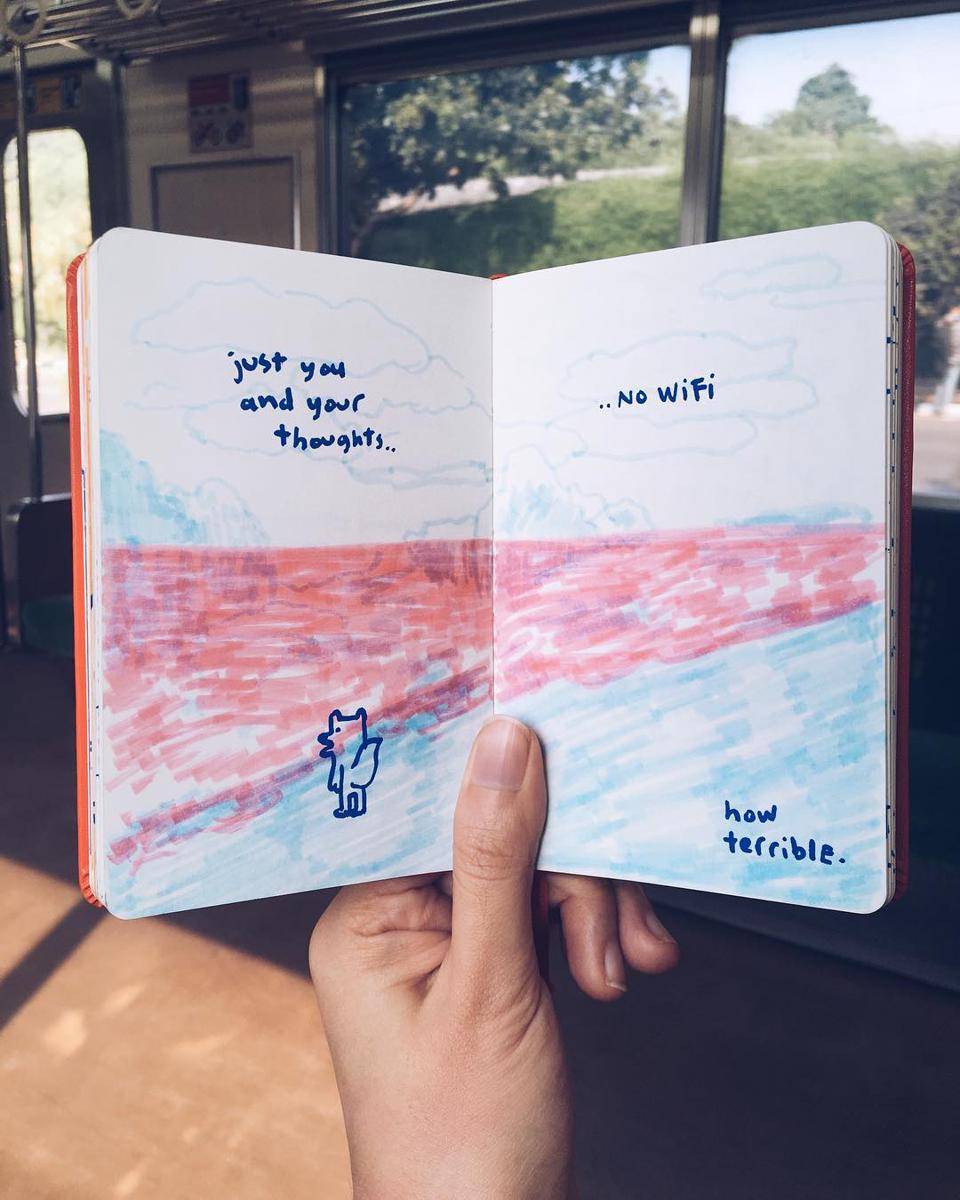 just you
and your
thoughts..
..NO WiFi
how
terriblE.